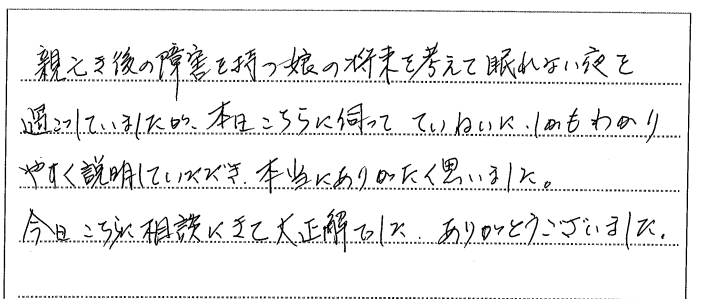 親なき後の障害を持つ娘の将来を考えて眠れない夜を
過ごしていましたが、本日こちらに伺って ていねいに、しかもわかり
やすく説明していただき、本当にありがたく思いました。
今日こちらに相談にきて大正解でした、ありがとうございました。